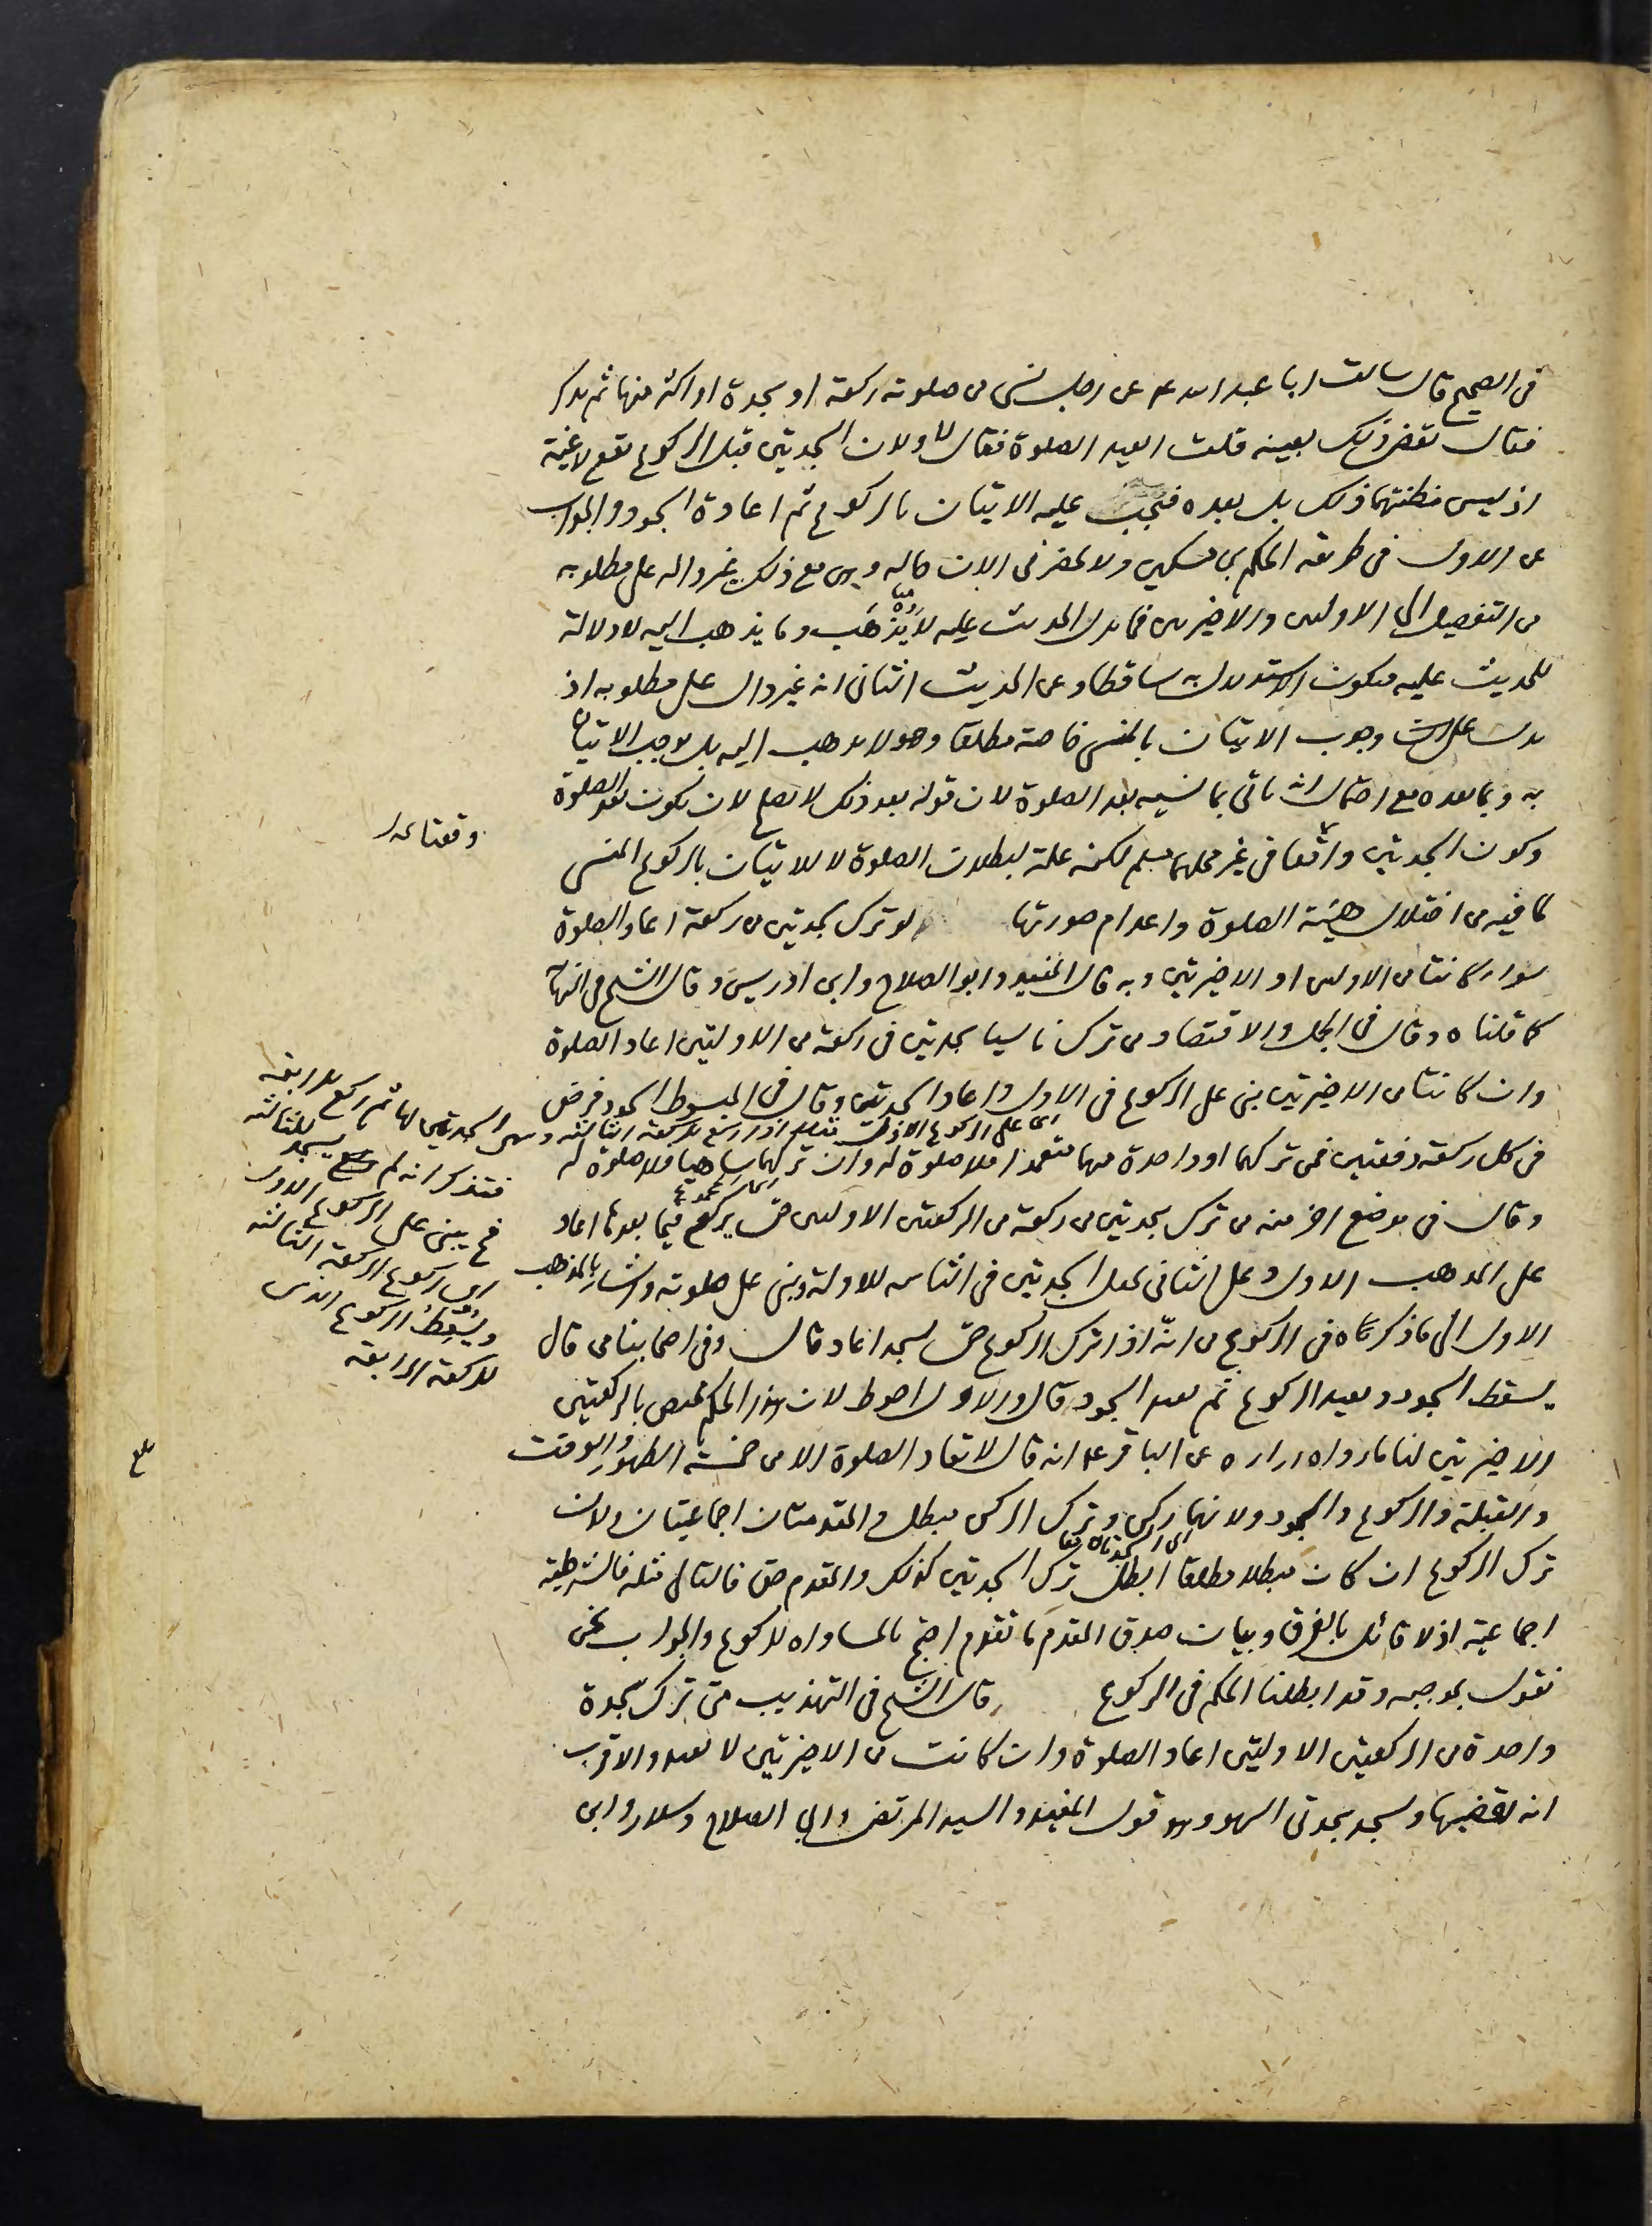 فى الصحيح قال سالت ابا عبد الله ع عن رجل نسى من صلوته ركعة او سجدة او اكثر منها ثم يذكر
فقال يقضى ذلك بعينه قلت ايعيد الصلوة فقال لا ولان السجدتين قبل الركوع تقع لاغية
اذ ليس مظنتهما ذلك بل بعده فيجب عليه الاتيان بالركوع ثم اعادة السجود والجواب
عن الاول فى طريقه الحكم بن مسكين ولا يحضرنى الان حاله وهى مع ذلك غير داله على مطلوبه
من التفصيل الى الاوليين والاخيرتين فما يدل الحديث عليه لا يذهب وما يذهب اليه لا دلالة
للحديث عليه فيكون الاستدلال به ساقطا وعن الحديث الثانى انه غير دال على مطلوبه اذ
يدل على وجوب الاتيان بالمنسى خاصة مطلقا وهو لا يذهب اليه بل يوجب الاتيان
به وبما بعده مع احتمال ان ياتى بما نسيه بعد الصلوة لان قوله بعد ذلك لا يصلح لان يكون بعد الصلوة
وكون السجدتين واقعا فى غير محلهما مسلم لكنه علة لبطلان الصلوة لا للاتيان بالركوع المنسى
وقعتا
لما فيه من اختلال هيئة الصلوة واعدام صورتها لو ترك سجدتين من ركعة اعاد الصلوة
سواء كانتا من الاوليين او الاخيرتين وبه قال المفيد وابو الصلاح وابن ادريس وقال الشيخ فى النهاية
كما قلناه وقال فى الجمل والاقتصاد من ترك ناسيا سجدتين فى ركعة من الاولتين اعاد الصلوة
وان كانتا من الاخيرتين بنى على الركوع فى الاول واعاد السجدتين وقال فى المبسوط السجود فرض
فى كل ركعة دفعتين فمن تركهما او واحدة منهما متعمدا فلا صلوة له وان تركهما ساهيا فلا صلوة له
وسهى السجدتين لها ثم ركع للرابعة
فتذكر انه لم يسجد للثالثة
فح يبنى على الركوع الاول
اى ركوع الركعة الثالثة
ويسقط الركوع الذى
للركعة الرابعة
وقال فى موضع اخر منه من ترك سجدتين من ركعة من الركعتين الاوليين حتى يركع فيما بعدها اعاد
على المذهب الاول وعلى الثانى يجعل السجدتين فى الثانيه للاولة وبنى على صلوته واشار بالمذهب
الاول الى ما ذكرناه فى الركوع من انه اذا ترك الركوع حتى يسجد اعاد قال وفى اصحابنا من قال
يسقط السجود ويعيد الركوع ثم يعيد السجود قال والاول احوط لان هذا الحكم يختص بالركعتين
الاخيرتين لنا ما رواه زراره عن الباقر ع انه قال لا تعاد الصلوة الا من خمسة الطهور والوقت
والقبلة والركوع والسجود ولانهما ركن وترك الركن مبطل والمقدمتان اجماعيتان ولان
ترك الركوع ان كان مبطلا مطلقا ابطل ترك السجدتين كذلك والمقدم حق فالتالى مثله فالشرطية
اجماعية اذ لا قائل بالفرق وبيان صدق المقدم ما تقدم احتج بالمساواه للركوع والجواب نحن
نقول بموجبه وقد ابطلنا الحكم فى الركوع قال الشيخ فى التهذيب متى ترك سجدة
واحدة من الركعتين الاولتين اعاد الصلوة وان كانت من الاخيرتين لا يعيد والاقرب
انه يقضيها ويسجد سجدتى السهو وهو قول المفيد والسيد المرتضى وابى الصلاح وسلار وابن